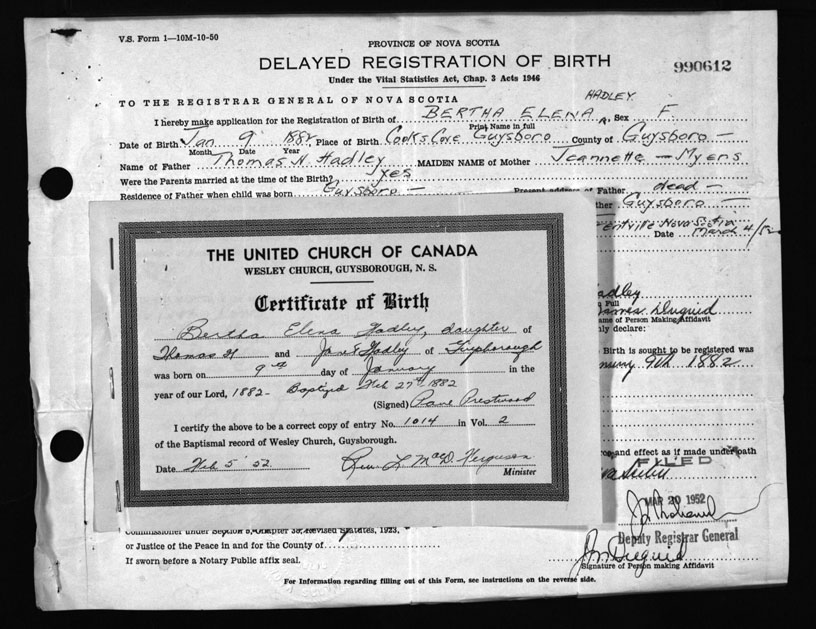 V.S. Form 1—10M-10-50
PROVINCE OF NOVA SCOTIA
DELAYED REGISTRATION OF BIRTH
990612
Under the Vital Statistics Act, Chap. 3 Acts 1946
HADLEY
TO THE REGISTRAR GENERAL OF NOVA SCOTIA
I hereby make application for the Registration of Birth of BERTHA ELENA Sex F.
Print Name in full
Date of Birth Jan 9 1882 Place of Birth Cooks Cove Guysboro County of Guysboro —
Month Date Year
Name of Father Thomas H. Hadley MAIDEN NAME of Mother Jeannette — Myers
Were the Parents married at the time of the Birth? yes
Residence of Father when child was born Guysboro — Present address of Father dead —
ther Guysboro —
entville Nova Scotia
Date March 4/52
THE UNITED CHURCH OF CANADA
WESLEY CHURCH, GUYSBOROUGH, N. S.
Certificate of Birth
Bertha Elena Hadley, daughter of
Thomas H and Hadley of Guysborough
was born on 9th day of January in the
year of our Lord, 1882 - Baptized Feb 27th 1882
(Signed) Prestwood
I certify the above to be a correct copy of entry No. 1014 in Vol. 2
of the Baptismal record of Wesley Church, Guysborough.
Date Feb 5 '52 Rev. L MacD. Ferguson
Minister
adley
Full
James Duguid
ame of Person Making Affidavit
nly declare:
Birth is sought to be registered was
9th 1882
and effect as if made under oath
FILED
MAR 20 1952
Deputy Registrar General
Commissioner under Section 5, Chapter 38, Revised Statutes, 1923,
or Justice of the Peace in and for the County of
If sworn before a Notary Public affix seal.
J Duguid
Signature of Person making Affidavit
For Information regarding filling out of this Form, see instructions on the reverse side.